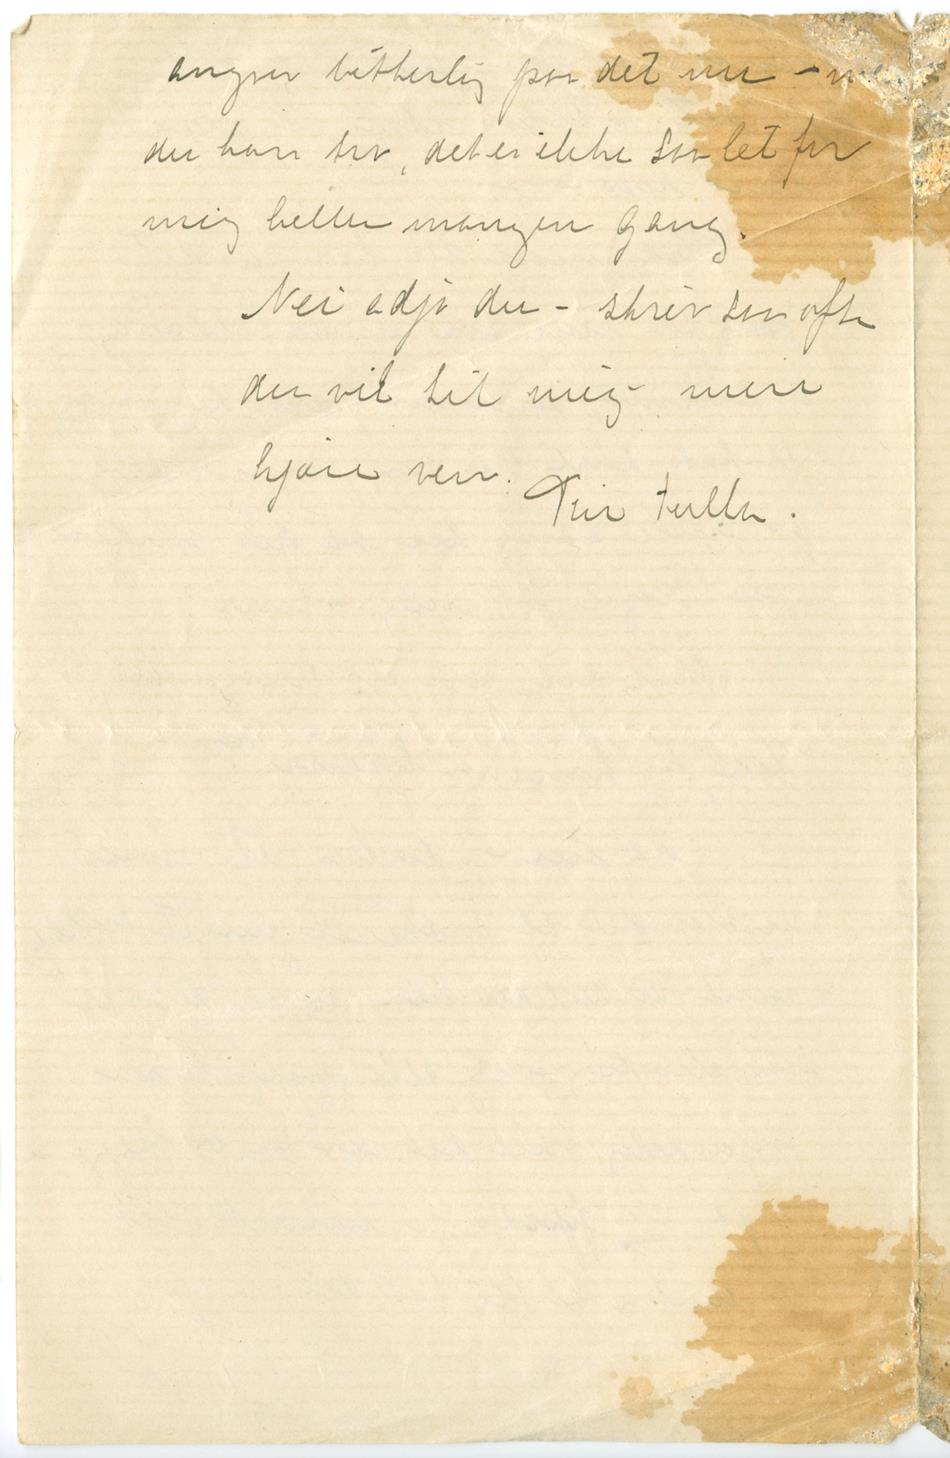 angrer bitterlig paa det nu -
du kan tro, det er ikke saa let for
mig heller mangen Gang.
Nei adjø du - skriv saa ofte
du vil til mig
kjære ven.
Din Tulla.